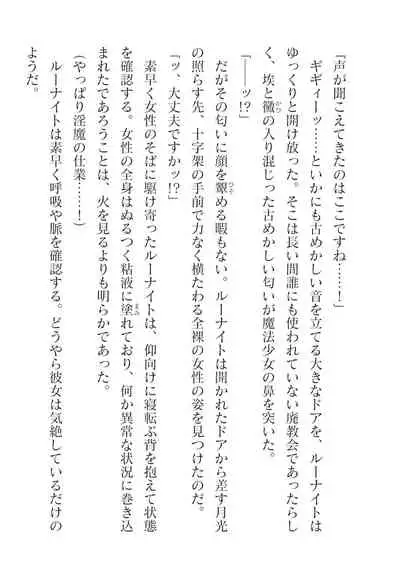 「声が聞こえてきたのはここですね……！」
ギギィーッ……といかにも古めかしい音を立てる大きなドアを、ルーナイトは
ゆっくりと開け放った。そこは長い間誰にも使われていない廃教会であったらし
く、埃と黴の入り混じった古めかしい匂いが魔法少女の鼻を突いた。
「――ッ!?」
だがその匂いに顔を顰める暇もない。ルーナイトは開かれたドアから差す月光
の照らす先、十字架の手前で力なく横たわる全裸の女性の姿を見つけたのだ。
「ッ、大丈夫ですかッ!?」
素早く女性のそばに駆け寄ったルーナイトは、仰向けに寝転ぶ背を抱えて状態
を確認する。女性の全身はぬるつく粘液に塗れており、何か異常な状況に巻き込
まれたであろうことは、火を見るよりも明らかであった。
(やっぱり淫魔の仕業……!)
ルーナイトは素早く呼吸や脈を確認する。どうやら彼女は気絶しているだけの
ようだ。